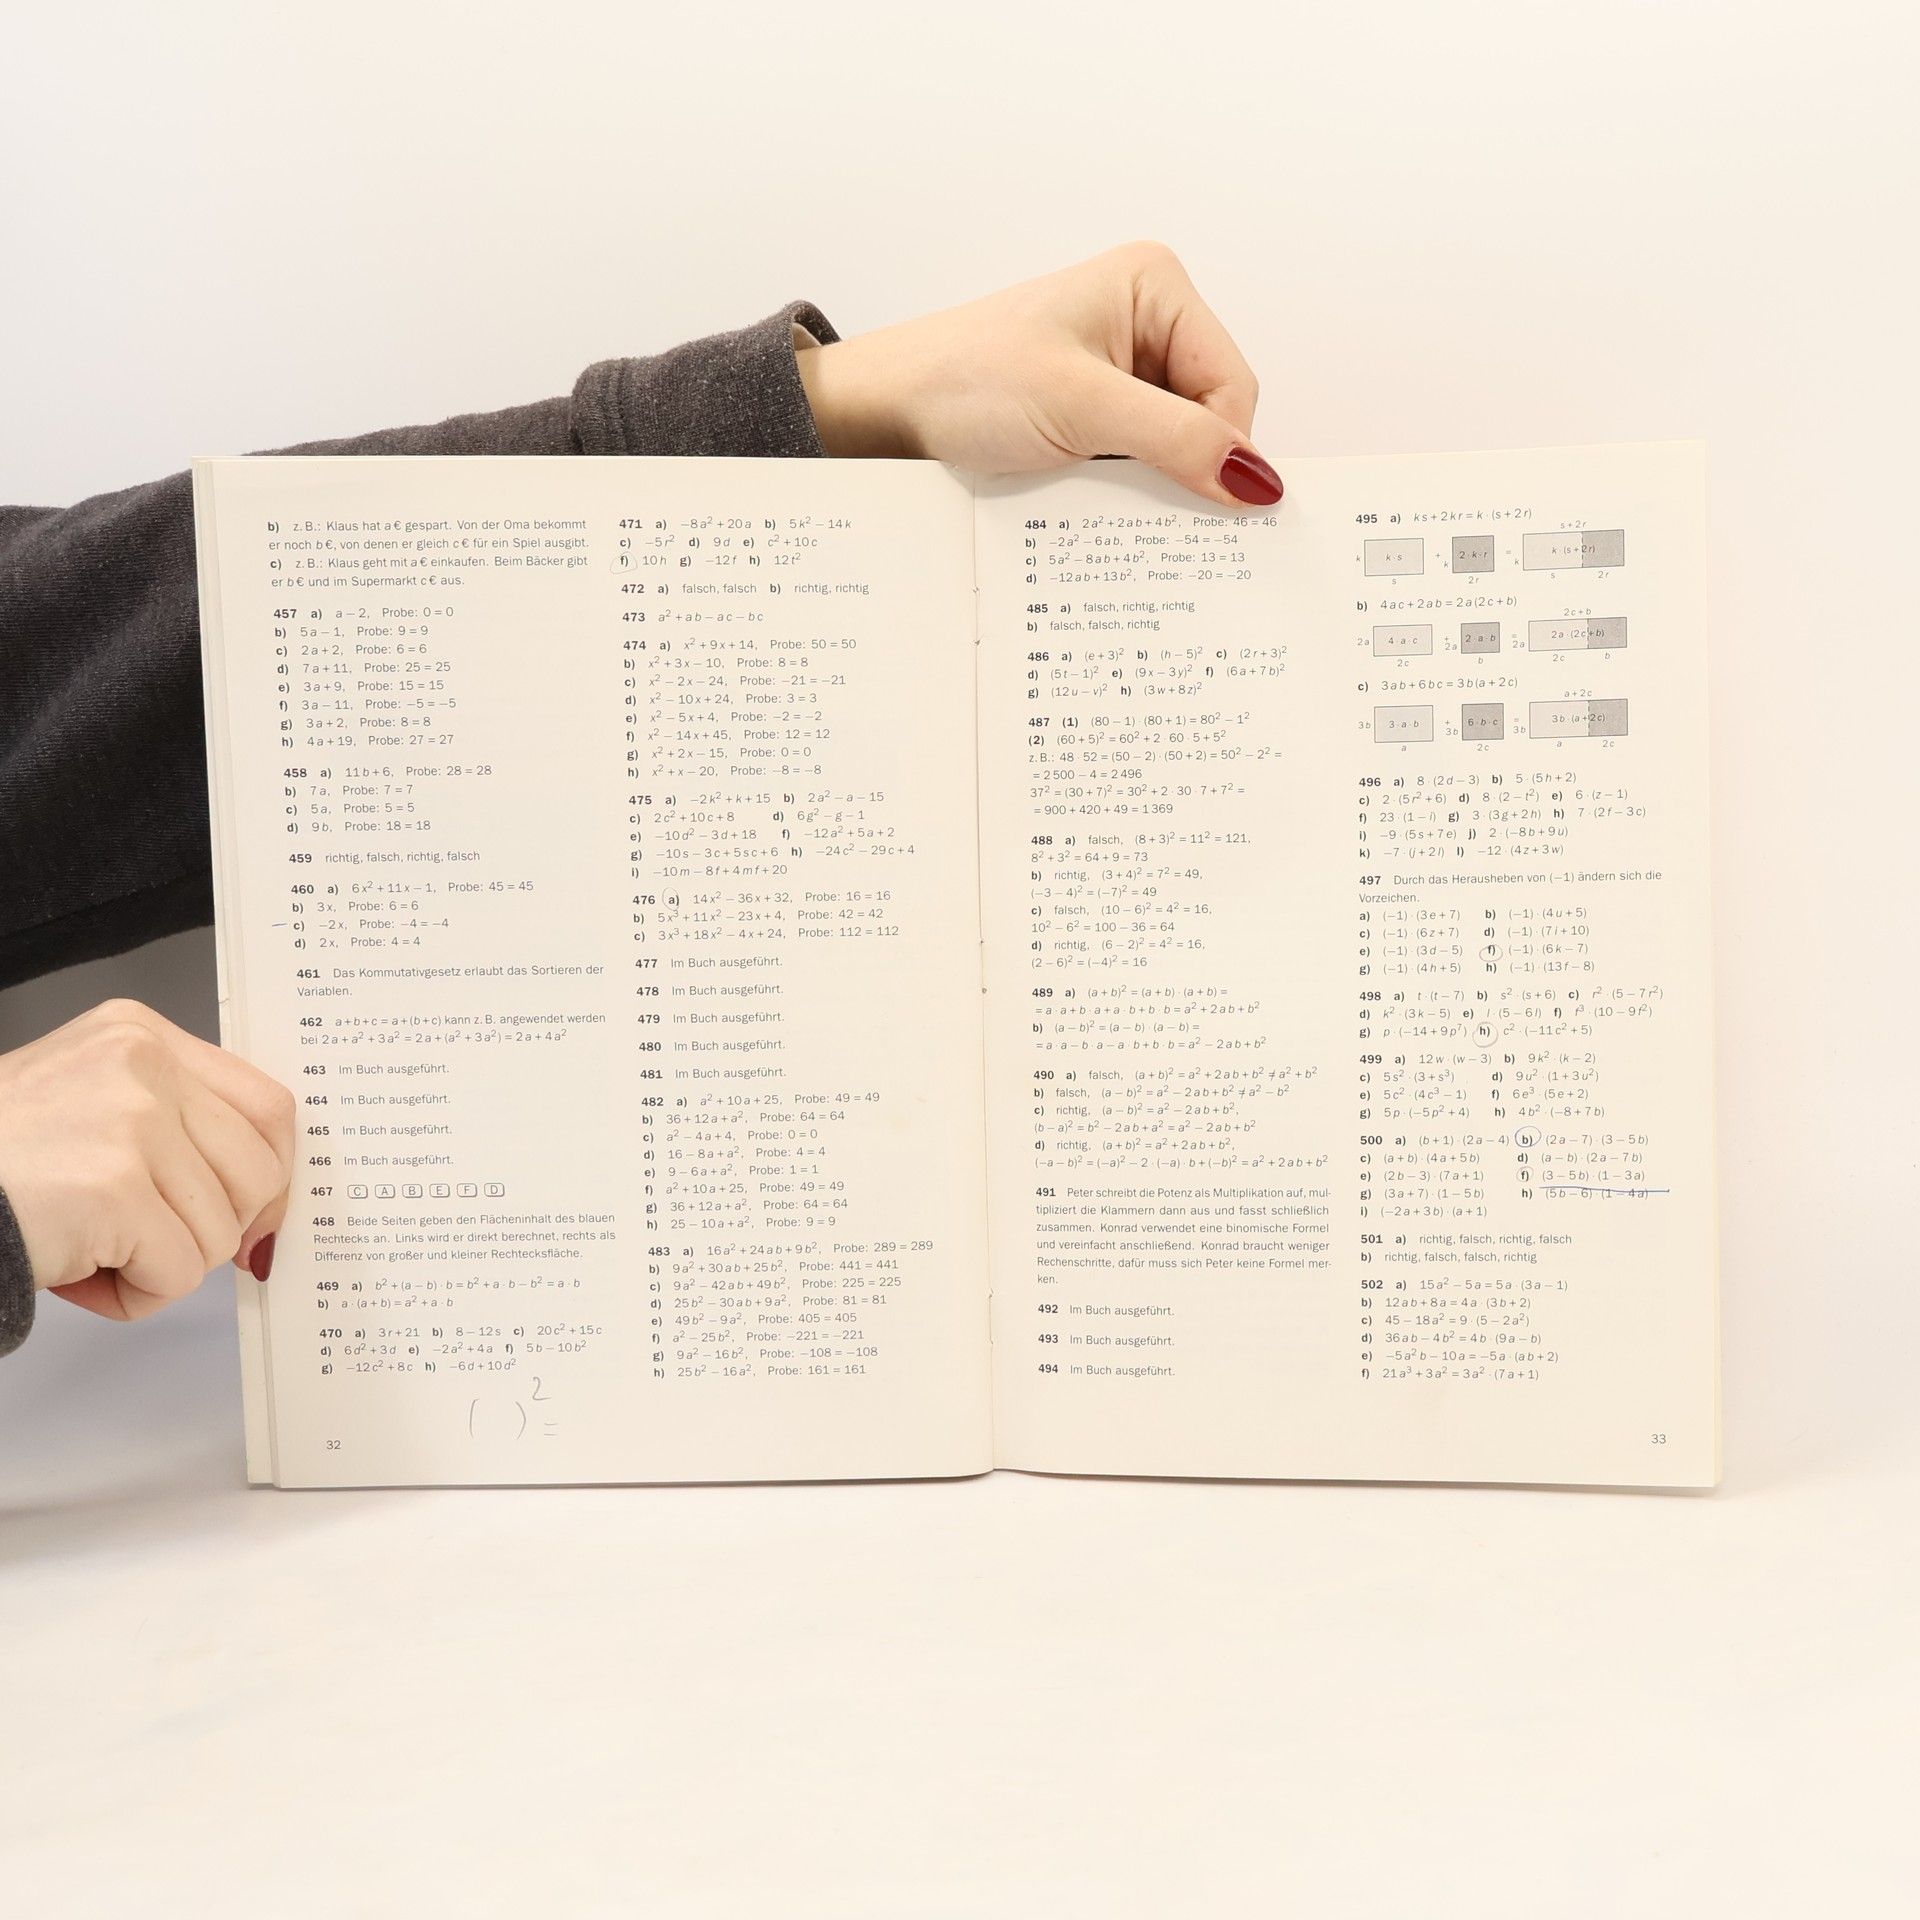 b) z. B.: Klaus hat a € gespart. Von der Oma bekommt
er noch b €, von denen er gleich c € für ein Spiel ausgibt.
c) z. B.: Klaus geht mit a € einkaufen. Beim Bäcker gibt
er b € und im Supermarkt c € aus.
457 a) a − 2, Probe: 0 = 0
b) 5a − 1, Probe: 9 = 9
c) 2a + 2, Probe: 6 = 6
d) 7a + 11, Probe: 25 = 25
e) 3a + 9, Probe: 15 = 15
f) 3a − 11, Probe: −5 = −5
g) 3a + 2, Probe: 8 = 8
h) 4a + 19, Probe: 27 = 27
458 a) 11b + 6, Probe: 28 = 28
b) 7a, Probe: 7 = 7
c) 5a, Probe: 5 = 5
d) 9b, Probe: 18 = 18
459 richtig, falsch, richtig, falsch
460 a) 6x² + 11x − 1, Probe: 45 = 45
b) 3x, Probe: 6 = 6
c) −2x, Probe: −4 = −4
d) 2x, Probe: 4 = 4
461 Das Kommutativgesetz erlaubt das Sortieren der
Variablen.
462 a + b + c = a + (b + c) kann z. B. angewendet werden
bei 2a + a² + 3a² = 2a + (a² + 3a²) = 2a + 4a²
463 Im Buch ausgeführt.
464 Im Buch ausgeführt.
465 Im Buch ausgeführt.
466 Im Buch ausgeführt.
467 C A B E F D
468 Beide Seiten geben den Flächeninhalt des blauen
Rechtecks an. Links wird er direkt berechnet, rechts als
Differenz von großer und kleiner Rechtecksfläche.
469 a) b² + (a − b) · b = b² + a · b − b² = a · b
b) a · (a + b) = a² + a · b
470 a) 3r + 21 b) 8 − 12s c) 20c² + 15c
d) 6d² + 3d e) −2a² + 4a f) 5b − 10b²
g) −12c² + 8c h) −6d + 10d²
( )² =
32
471 a) −8a² + 20a b) 5k² − 14k
c) −5r² d) 9d e) c² + 10c
f) 10h g) −12f h) 12t²
472 a) falsch, falsch b) richtig, richtig
473 a² + ab − ac − bc
474 a) x² + 9x + 14, Probe: 50 = 50
b) x² + 3x − 10, Probe: 8 = 8
c) x² − 2x − 24, Probe: −21 = −21
d) x² − 10x + 24, Probe: 3 = 3
e) x² − 5x + 4, Probe: −2 = −2
f) x² − 14x + 45, Probe: 12 = 12
g) x² + 2x − 15, Probe: 0 = 0
h) x² + x − 20, Probe: −8 = −8
475 a) −2k² + k + 15 b) 2a² − a − 15
c) 2c² + 10c + 8 d) 6g² − g − 1
e) −10d² − 3d + 18 f) −12a² + 5a + 2
g) −10s − 3c + 5sc + 6 h) −24c² − 29c + 4
i) −10m − 8f + 4mf + 20
476 a) 14x² − 36x + 32, Probe: 16 = 16
b) 5x³ + 11x² − 23x + 4, Probe: 42 = 42
c) 3x³ + 18x² − 4x + 24, Probe: 112 = 112
477 Im Buch ausgeführt.
478 Im Buch ausgeführt.
479 Im Buch ausgeführt.
480 Im Buch ausgeführt.
481 Im Buch ausgeführt.
482 a) a² + 10a + 25, Probe: 49 = 49
b) 36 + 12a + a², Probe: 64 = 64
c) a² − 4a + 4, Probe: 0 = 0
d) 16 − 8a + a², Probe: 4 = 4
e) 9 − 6a + a², Probe: 1 = 1
f) a² + 10a + 25, Probe: 49 = 49
g) 36 + 12a + a², Probe: 64 = 64
h) 25 − 10a + a², Probe: 9 = 9
483 a) 16a² + 24ab + 9b², Probe: 289 = 289
b) 9a² + 30ab + 25b², Probe: 441 = 441
c) 9a² − 42ab + 49b², Probe: 225 = 225
d) 25b² − 30ab + 9a², Probe: 81 = 81
e) 49b² − 9a², Probe: 405 = 405
f) a² − 25b², Probe: −221 = −221
g) 9a² − 16b², Probe: −108 = −108
h) 25b² − 16a², Probe: 161 = 161
484 a) 2a² + 2ab + 4b², Probe: 46 = 46
b) −2a² − 6ab, Probe: −54 = −54
c) 5a² − 8ab + 4b², Probe: 13 = 13
d) −12ab + 13b², Probe: −20 = −20
485 a) falsch, richtig, richtig
b) falsch, falsch, richtig
486 a) (e + 3)² b) (h − 5)² c) (2r + 3)²
d) (5t − 1)² e) (9x − 3y)² f) (6a + 7b)²
g) (12u − v)² h) (3w + 8z)²
487 (1) (80 − 1) · (80 + 1) = 80² − 1²
(2) (60 + 5)² = 60² + 2 · 60 · 5 + 5²
z. B.: 48 · 52 = (50 − 2) · (50 + 2) = 50² − 2² =
= 2 500 − 4 = 2 496
37² = (30 + 7)² = 30² + 2 · 30 · 7 + 7² =
= 900 + 420 + 49 = 1 369
488 a) falsch, (8 + 3)² = 11² = 121,
8² + 3² = 64 + 9 = 73
b) richtig, (3 + 4)² = 7² = 49,
(−3 − 4)² = (−7)² = 49
c) falsch, (10 − 6)² = 4² = 16,
10² − 6² = 100 − 36 = 64
d) richtig, (6 − 2)² = 4² = 16,
(2 − 6)² = (−4)² = 16
489 a) (a + b)² = (a + b) · (a + b) =
= a · a + b · a + a · b + b · b = a² + 2ab + b²
b) (a − b)² = (a − b) · (a − b) =
= a · a − b · a − a · b + b · b = a² − 2ab + b²
490 a) falsch, (a + b)² = a² + 2ab + b² ≠ a² + b²
b) falsch, (a − b)² = a² − 2ab + b² ≠ a² − b²
c) richtig, (a − b)² = a² − 2ab + b²,
(b − a)² = b² − 2ab + a² = a² − 2ab + b²
d) richtig, (a + b)² = a² + 2ab + b²,
(−a − b)² = (−a)² − 2 · (−a) · b + (−b)² = a² + 2ab + b²
491 Peter schreibt die Potenz als Multiplikation auf, mul-
tipliziert die Klammern dann aus und fasst schließlich
zusammen. Konrad verwendet eine binomische Formel
und vereinfacht anschließend. Konrad braucht weniger
Rechenschritte, dafür muss sich Peter keine Formel mer-
ken.
492 Im Buch ausgeführt.
493 Im Buch ausgeführt.
494 Im Buch ausgeführt.
495 a) ks + 2kr = k · (s + 2r)
s + 2r
k k · s + k 2 · k · r = k k · (s + 2r)
s 2r s 2r
b) 4ac + 2ab = 2a(2c + b)
2c + b
2a 4 · a · c + 2a 2 · a · b = 2a 2a · (2c + b)
2c b 2c b
c) 3ab + 6bc = 3b(a + 2c)
a + 2c
3b 3 · a · b + 3b 6 · b · c = 3b 3b · (a + 2c)
a 2c a 2c
496 a) 8 · (2d − 3) b) 5 · (5h + 2)
c) 2 · (5r² + 6) d) 8 · (2 − t²) e) 6 · (z − 1)
f) 23 · (1 − i) g) 3 · (3g + 2h) h) 7 · (2f − 3c)
i) −9 · (5s + 7e) j) 2 · (−8b + 9u)
k) −7 · (j + 2l) l) −12 · (4z + 3w)
497 Durch das Herausheben von (−1) ändern sich die
Vorzeichen.
a) (−1) · (3e + 7) b) (−1) · (4u + 5)
c) (−1) · (6z + 7) d) (−1) · (7i + 10)
e) (−1) · (3d − 5) f) (−1) · (6k − 7)
g) (−1) · (4h + 5) h) (−1) · (13f − 8)
498 a) t · (t − 7) b) s² · (s + 6) c) r² · (5 − 7r²)
d) k² · (3k − 5) e) l · (5 − 6l) f) f³ · (10 − 9f²)
g) p · (−14 + 9p⁷) h) c² · (−11c² + 5)
499 a) 12w · (w − 3) b) 9k² · (k − 2)
c) 5s² · (3 + s³) d) 9u² · (1 + 3u²)
e) 5c² · (4c³ − 1) f) 6e³ · (5e + 2)
g) 5p · (−5p² + 4) h) 4b² · (−8 + 7b)
500 a) (b + 1) · (2a − 4) b) (2a − 7) · (3 − 5b)
c) (a + b) · (4a + 5b) d) (a − b) · (2a − 7b)
e) (2b − 3) · (7a + 1) f) (3 − 5b) · (1 − 3a)
g) (3a + 7) · (1 − 5b) h) (5b − 6) · (1 − 4a)
i) (−2a + 3b) · (a + 1)
501 a) richtig, falsch, richtig, falsch
b) richtig, falsch, falsch, richtig
502 a) 15a² − 5a = 5a · (3a − 1)
b) 12ab + 8a = 4a · (3b + 2)
c) 45 − 18a² = 9 · (5 − 2a²)
d) 36ab − 4b² = 4b · (9a − b)
e) −5a²b − 10a = −5a · (ab + 2)
f) 21a³ + 3a² = 3a² · (7a + 1)
33